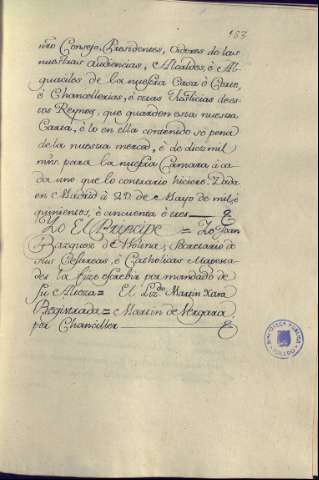 153
nrõ Consejo, Presidentes, Oidores de las
nuestras Audiencias, Alcaldes, é Al-
guaciles de la nuestra Casa ò Corte,
è Chancellerias, è otras Justicias de es-
tos Reynos, que guarden esta nuestra
Carta, è lo en ella contenido so pena
de la nuestra merced, è de diez mil
mrs para la nuestra Camara à ca-
da uno que lo contrario hiciere. Dada
en Madrid à de Mayo de mil, è
quinientos, è cinquenta è tres
Yo El Principe = Yo Joan
Bazquez de Molina, Secretario de
sus Cesarea, è Catholicas Magesta-
des la fize escribir por mandado de
su Alteza = El Lizdo. Martin
Registrada = Martin de Vergara,
por Chanciller
BIBLIOTECA PUBLICA
TOLEDO